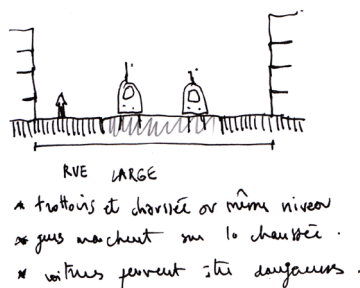 RUE LARGE
* trottoirs et chaussée au même niveau
* gens marchent sur la chaussée.
* voitures peuvent être dangereuses.